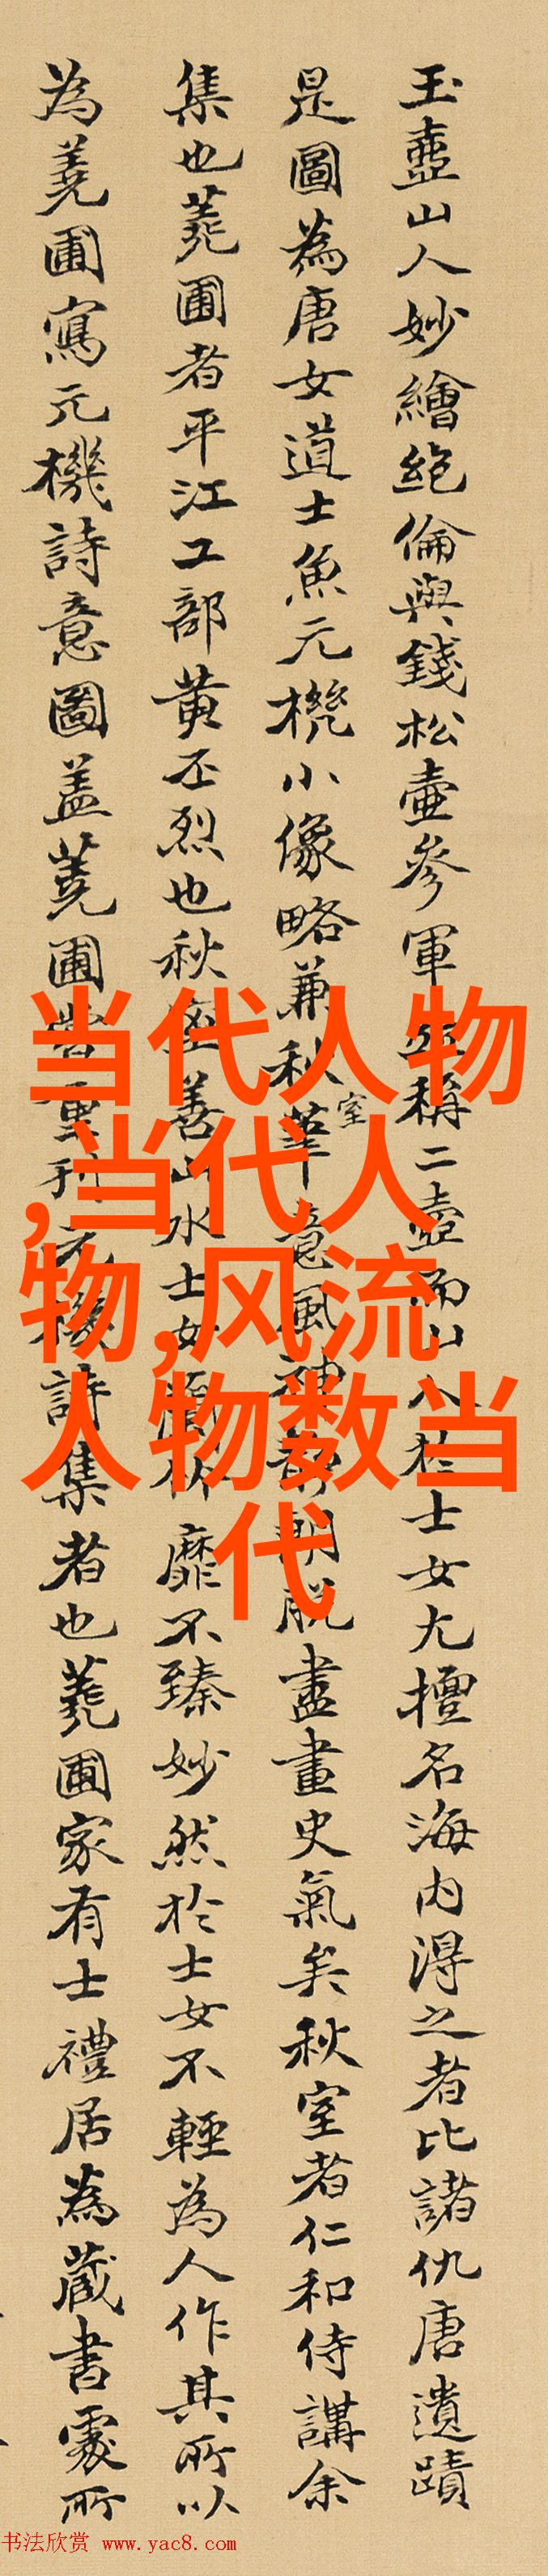 玉壺山人妙繪絕倫與錢松壺參軍並稱二壺而山人於士女尤擅名海內得之者比諸仇唐遺蹟
是圖為唐女道士魚元機小像略兼秋室華意風神朗脫盡畫史氣矣秋室者仁和侍講余
集也蕘圃者平江工部黃丕烈也秋室善山水士女蘭竹靡不臻妙然於士女不輕為人作其所以
為蕘圃寫元機詩意圖蓋蕘圃嘗重刊元機詩集者也蕘圃家有士禮居為藏書處所
当代人物
,当代人
物,风流
人物数当
代
书法欣赏 www.yac8.com